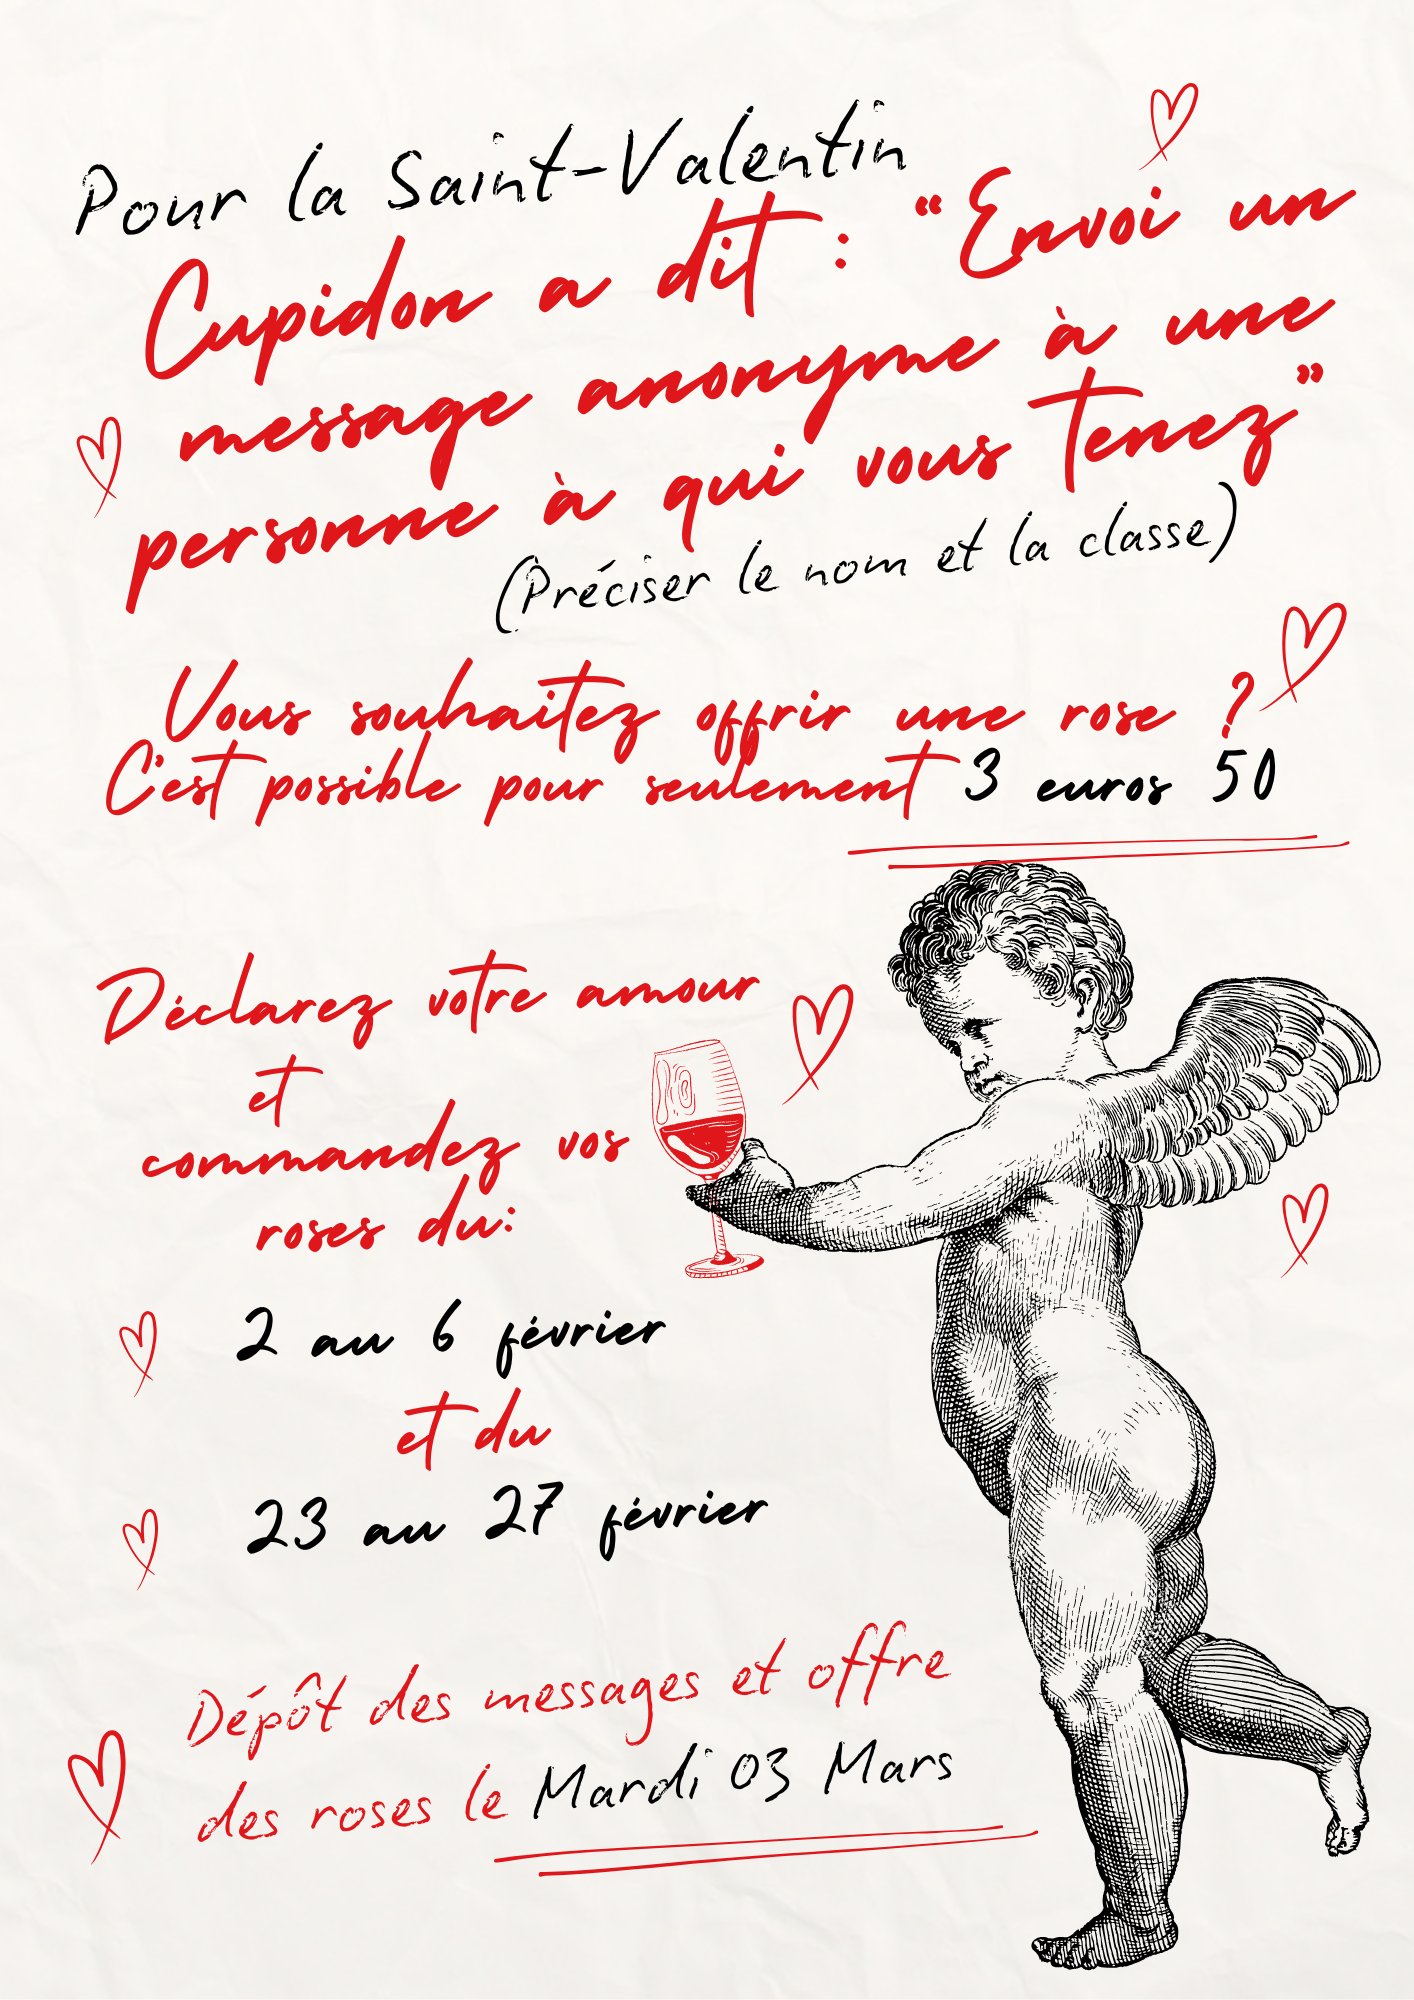 Pour la Saint-Valentin
Cupidon a dit : "Envoi un
message anonyme à une
personne à qui vous tenez"
(Préciser le nom et la classe)
Vous souhaitez offrir une rose ?
C'est possible pour seulement 3 euros 50
Déclarez votre amour
et
commandez vos
roses du:
2 au 6 février
et du
23 au 27 février
Dépôt des messages et offre
des roses le Mardi 03 Mars